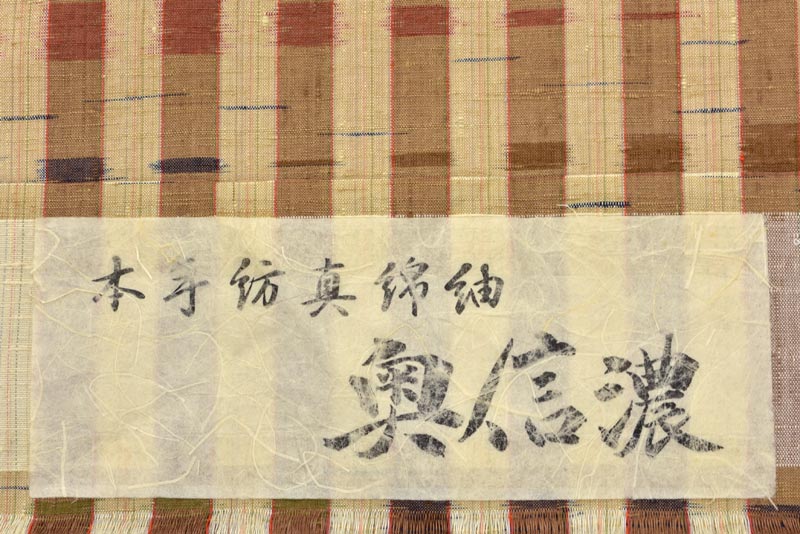 本手紡真綿紬
奥信濃